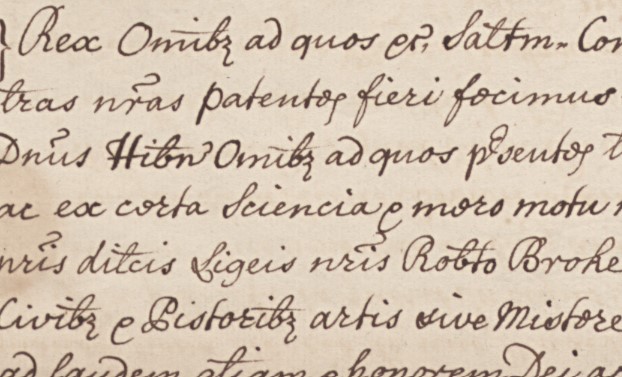 Rex Om̄ibꝫ ad quos ꝛc̃, Sal̃tm̃ Con
tras nr̃as patentes fieri fecimus
Dnũs Hibn̄ Om̄ibꝫ ad quos p̃sentes
ac ex certa Sciencia ꝑ mero motu
nr̃is dil̃cis Ligeis nr̃is Rob̃to Broke
Civibꝫ ꝑ Pistoribꝫ artis sive Mistere
ad laudem etiam ꝑ honorem Dei ac